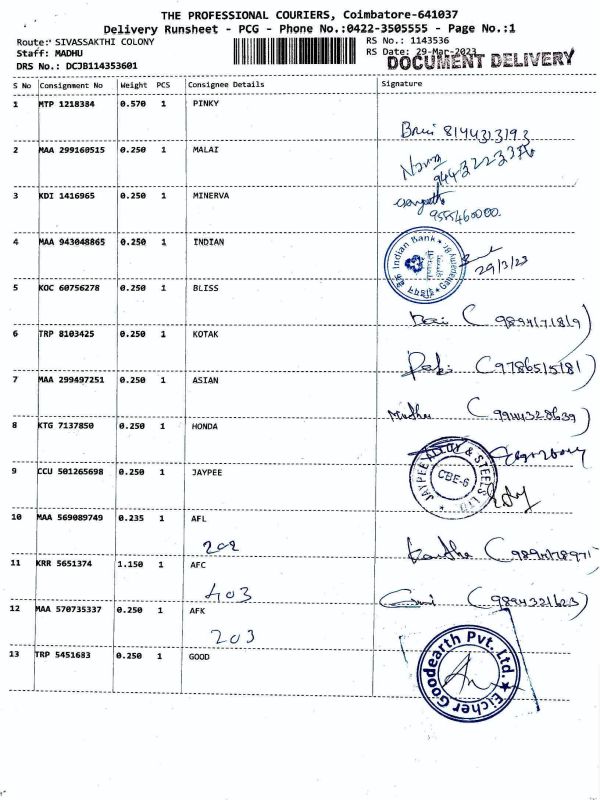 THE PROFESSIONAL COURIERS, Coimbatore-641037
Delivery Runsheet - PCG - Phone No.:0422-3505555 - Page No.:1
Route: SIVASSAKTHI COLONY RS No.: 1143536
Staff: MADHU RS Date: 29-Mar-2023
DRS No.: DCJB114353601 DOCUMENT DELIVERY
S No Consignment No Weight PCS Consignee Details Signature
1 MTP 1218384 0.570 1 PINKY
8144313193
2 MAA 299160515 0.250 1 MALAI
3 KDI 1416965 0.250 1 MINERVA
9555460000.
4 MAA 943048865 0.250 1 INDIAN
Indian Bank
29/3/23
5 KOC 60756278 0.250 1 BLISS
6 TRP 8103425 0.250 1 KOTAK
(9786515181)
7 MAA 299497251 0.250 1 ASIAN
(9944328639)
8 KTG 7137850 0.250 1 HONDA
9 CCU 501265698 0.250 1 JAYPEE
JAYPEE ALLOY & STEELS LTD
CBE-6
10 MAA 569089749 0.235 1 AFL
202
11 KRR 5651374 1.150 1 AFC
403 (9894321623)
12 MAA 570735337 0.250 1 AFK
203
13 TRP 5451683 0.250 1 GOOD
Eicher Goodearth Pvt. Ltd.